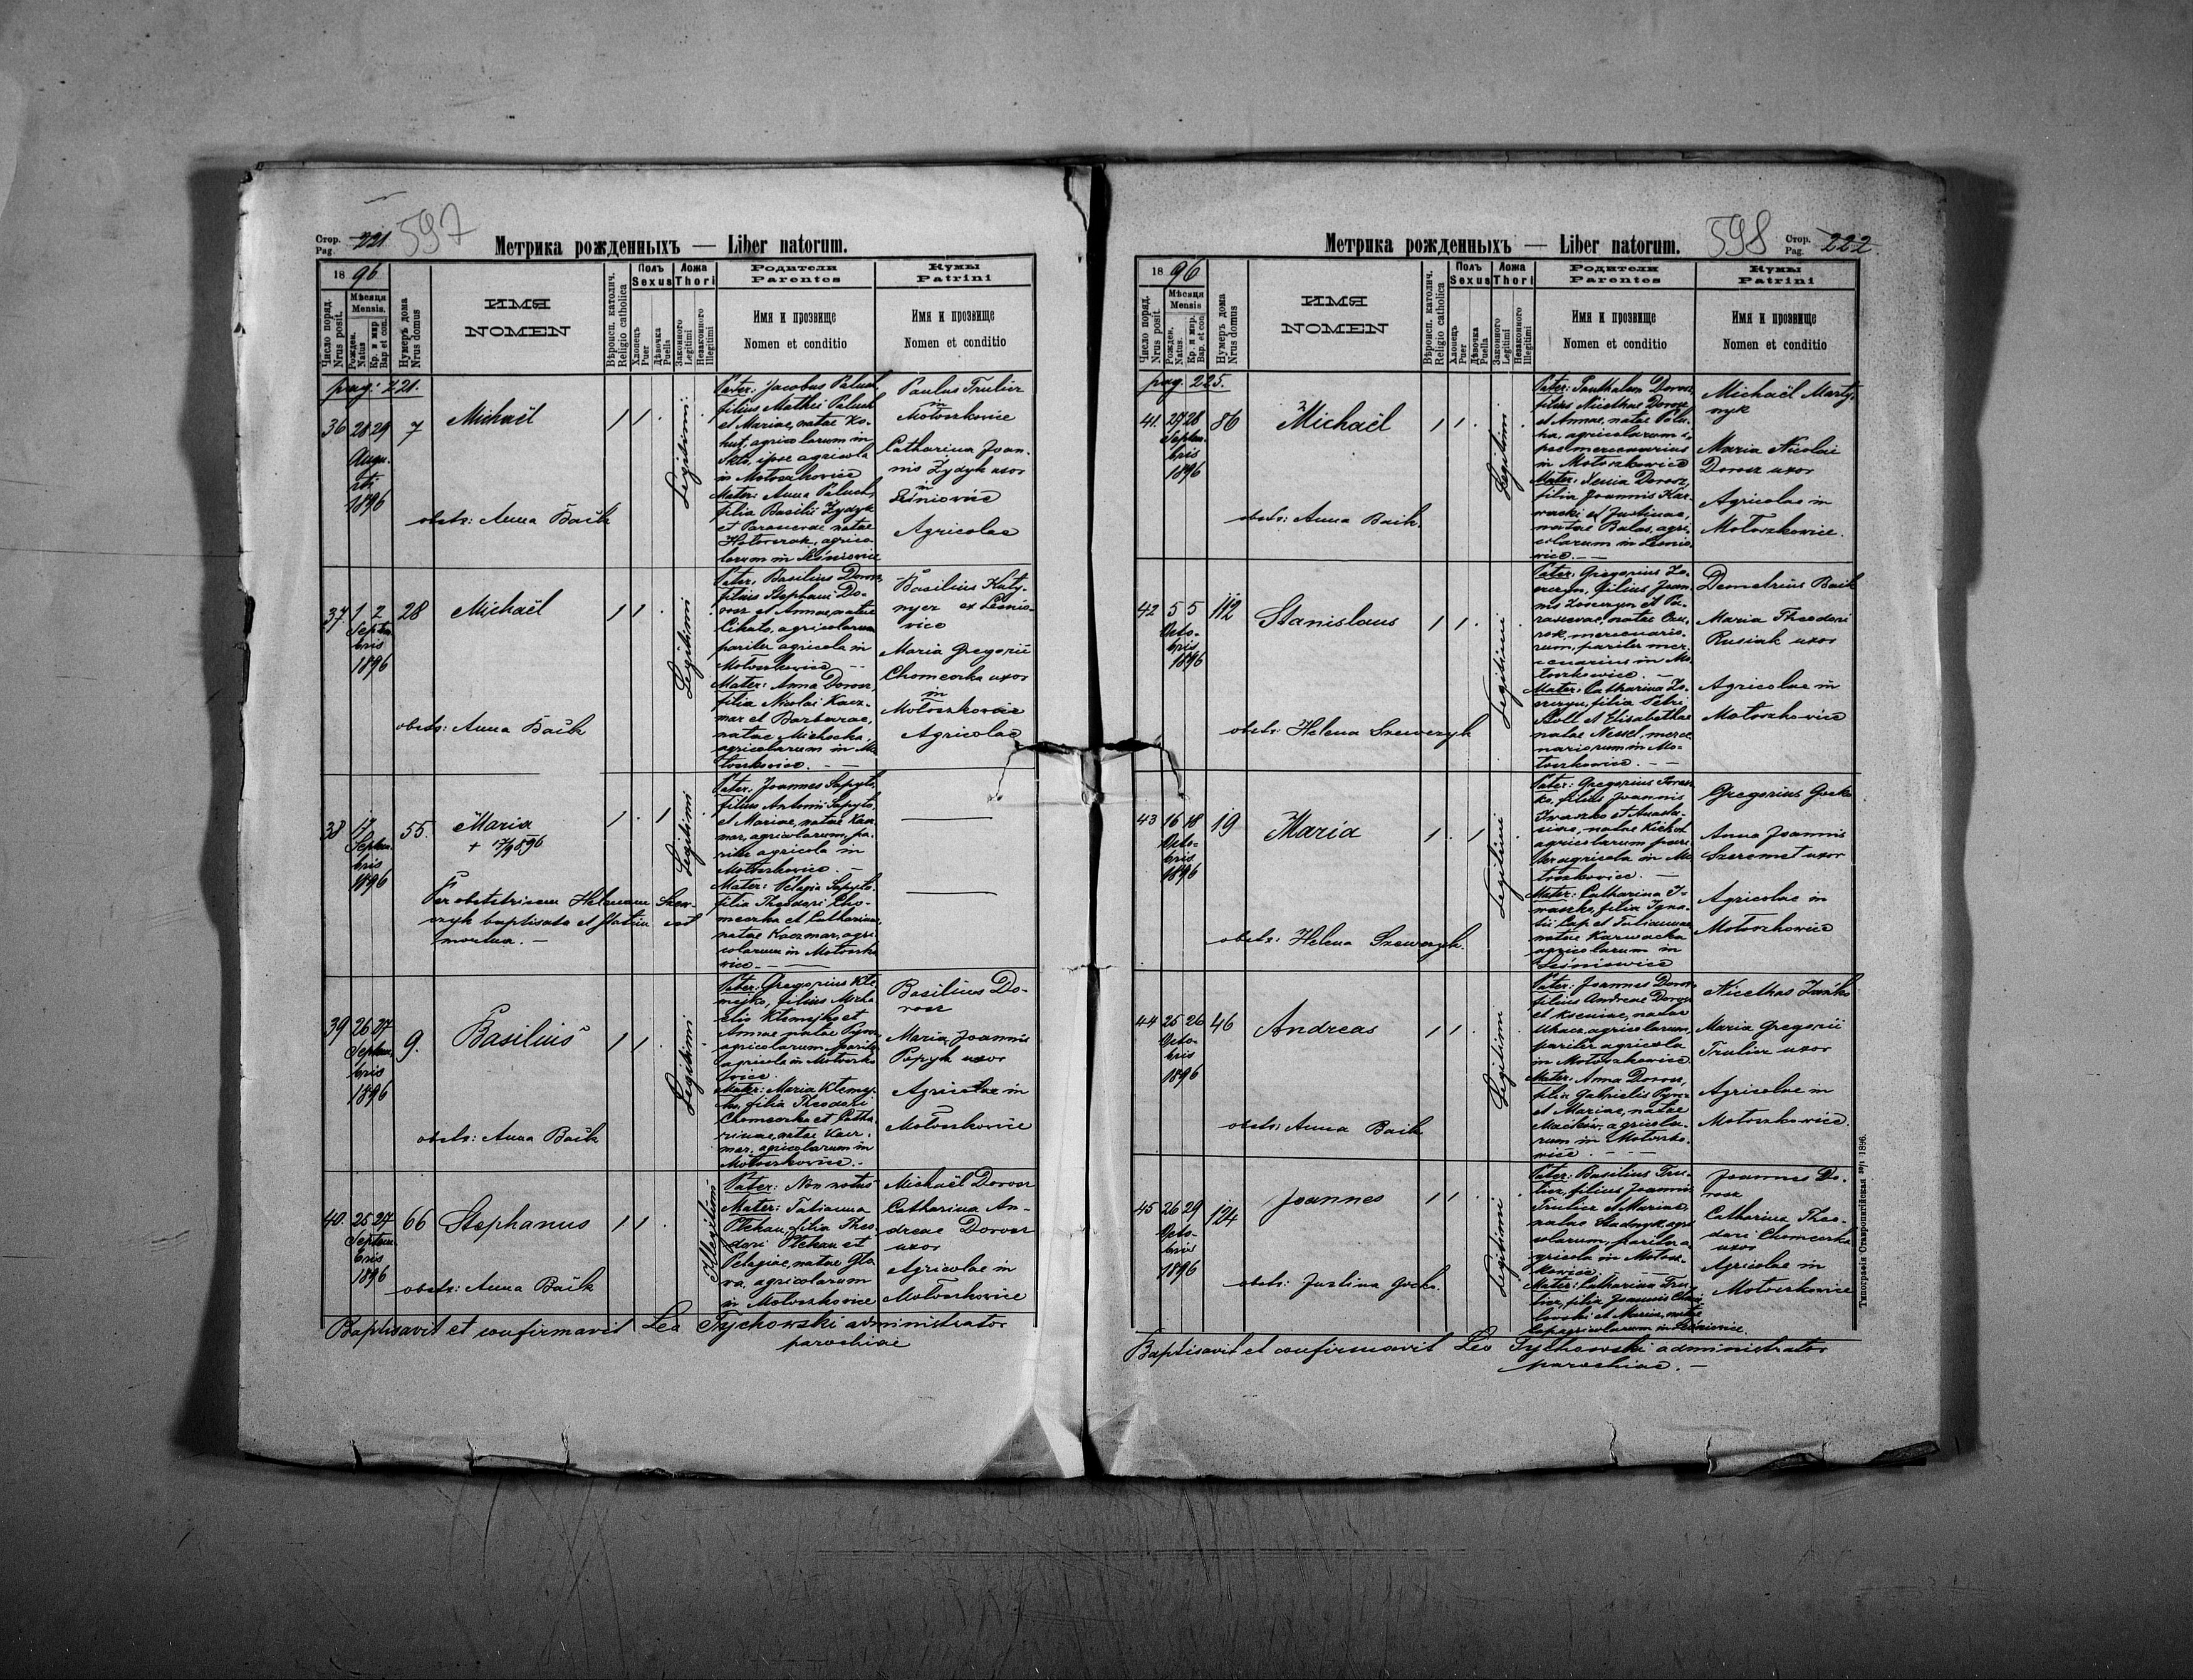 Стор.
Pag. 221. 597
Метрика рожденныхъ — Liber natorum.
18 96
Число поряд.
Nrus posit.
Мѣсяця
Mensis.
Рожден.
Natus
Кр. и мѵр
Bap. et con.
Нумеръ дома
Nrus domus
ИМЯ
NOMEN
Вѣроисп. католич.
Religio catholica
Полъ
Sexus
Хлопець
Puer
Дѣвочка
Puella
Ложа
Thori
Законного
Legitimi
Незаконного
Illegitimi
Родители
Parentes
Имя и прозвище
Nomen et conditio
Кумы
Patrini
Имя и прозвище
Nomen et conditio
pag: 221.
36 28 29
Augu-
sti
1896
7
Michaël
1 1
Legitimi
obstr: Anna Baik
Pater: Jacobus Paluch,
filius Mathei Paluch
et Mariae, natae Ko-
hut, agricolarum in
ipse agricola
in Mołoszkowice
Mater: Anna Paluch,
filia Basilii Żydyk
et Parascevae natae
agrico-
larum in Leśniowice
Paulus Trulicz
in
Mołoszkowice
Catharina Joan-
nis Żydyk uxor
in
Leśniowice
Agricolae
37 1 2
Septem-
bris
1896
28
Michaël
1 1
Legitimi
obstr: Anna Baik
Pater: Basilius Dorosz,
filius Stephani Do-
rosz et Annae, natae
agricolarum
pariter agricola in
Mołoszkowice. - -
Mater: Anna Dorosz,
filia Nicolai Kacz-
mar et Barbarae,
natae
agricolarum in Mo-
łoszkowice. - -
Basilius
ex Leśnio-
wice
Maria Gregorii
Chomcorka uxor
in
Mołoszkowice
Agricolae
38 17
Septem-
bris
1896
55.
Maria
+ 17/9 896
1 1
Legitimi
Per obstetricem Helenam Szew-
czyk baptisata et statim est
mortua. —
Pater: Joannes Sapyło,
filius Antonii Sapyło,
et Mariae, natae Kacz-
mar, agricolarum, pa-
riter agricola in
Mołoszkowice. —
Mater: Pelagia Sapyło
filia Theodori Cho-
mcorka et Catharinae,
natae Kaczmar, agri-
colarum in Mołoszko
wice. —
39 26 27
Septem-
bris
1896
9.
Basilius
1 1
Legitimi
obstr: Anna Baik
Pater: Gregorius Kłe-
mejko, filius Micha-
elis Kłemejko et
Annae natae
agricolarum, pariter
agricola in Mołoszko
wice.
Mater: Maria Kłemej-
ko, filia Theodori
Chomcorka et Catha-
rinae, natae Kacz-
mar, agricolarum in
Mołoszkowice. -
Basilius Do-
rosz
Maria Joannis
Popyk uxor
Agricolae in
Mołoszkowice
40. 25 27
Septem-
bris
1896
66
Stephanus
1 1
Illegitimi
obstr: Anna Baik
Pater: Non notus
Mater: Tatianna
filia Theo-
dori et
Pelagiae, natae
agricolarum
in Mołoszkowice
Michaël Dorosz
Catharina An-
dreae Dorosz
uxor
Agricolae in
Mołoszkowice
Baptisavit et confirmavit Leo Tychowski administrator
parochiae
Метрика рожденныхъ — Liber natorum.
598 Стор.
Pag. 222.
18 96
Число поряд.
Nrus posit.
Мѣсяця
Mensis
Рожден.
Natus.
Кр. и мѵр.
Bap. et con.
Нумеръ дома
Nrus domus
ИМЯ
NOMEN
Вѣроисп. католич.
Religio catholica
Полъ
Sexus
Хлопець
Puer
Дѣвочка
Puella
Ложа
Thori
Законного
Legitimi
Незаконного
Illegitimi
Родители
Parentes
Имя и прозвище
Nomen et conditio
Кумы
Patrini
Имя и прозвище
Nomen et conditio
pag. 225.
41. 27 28
Septem-
bris
1896
86
Michaël
1 1
Legitimi
obstr: Anna Baik.
Pater: Panthalon Dorosz,
filius Nicethae Dorosz
et Annae, natae
agricolarum
mercenarius
in Mołoszkowice
Mater: Xenia Dorosz,
filia Joannis Kar-
wacki et Justinae,
natae Balas, agri-
colarum in Leśnio-
wice. - -
Michaël Marty-
nyk
Maria Nicolai
Dorosz uxor
Agricolae in
Mołoszkowice.
42 5 5
Octo-
bris
1896
112
Stanislaus
1 1
Legitimi
obstr: Helena Szewczyk
Pater: Gregorius
filius Joan-
nis et Pa-
rascevae, natae
mercenario-
rum, pariter mer-
cenarius in Mo-
łoszkowice. -
Mater: Catharina
filia Petri
et Elisabethae
natae Nessel, merce-
nariorum in Mo-
łoszkowice. - -
Demetrius Baik
Maria Theodori
Rusiak uxor
Agricolae in
Mołoszkowice
43 16 18
Octo-
bris
1896
19
Maria
1 1
Legitimi
obstr: Helena Szewczyk.
Pater: Gregorius Iwasz-
ko, filius Joannis
Iwaszko et Anasta-
siae, natae
agricolarum pari-
ter agricola in Mo
łoszkowice. —
Mater: Catharina I-
waszko, filia Igna-
tii Cap et Tatiannae
natae Karwacka
agricolarum in
Leśniowice
Gregorius Gocko
Anna Joannis
Szeremet uxor
Agricolae in
Mołoszkowice
44 25 26
Octo-
bris
1896
46
Andreas
1 1
Legitimi
obstr: Anna Baik
Pater: Joannes Dorosz
filius Andreae Dorosz
et Kseniae, natae
agricolarum,
pariter agricola
in Mołoszkowice
Mater: Anna Dorosz,
filia Gabrielis
et Mariae, natae
Maćków, agricola-
rum in Mołoszko-
wice. - - -
Nicethas
Maria Gregorii
Trulicz uxor
Agricolae in
Mołoszkowice.
45 26 29
Octo-
bris
1896
124
Joannes
1 1
Legitimi
obstr: Justina Gocko.
Pater: Basilius Tru-
licz, filius Joannis
Trulicz et Mariae,
natae Stadnyk agri
colarum, pariter a
gricola in Mołosz-
kowice. - -
Mater: Catharina Tru-
licz, filia Joannis
et Mariae, natae
Cap agricolarum in Leśniowice.
Joannes Do-
rosz
Catharina Theo-
dori Chomcorka
uxor
Agricolae in
Mołoszkowice
Baptisavit et confirmavit Leo Tychowski administrator
parochiae. —